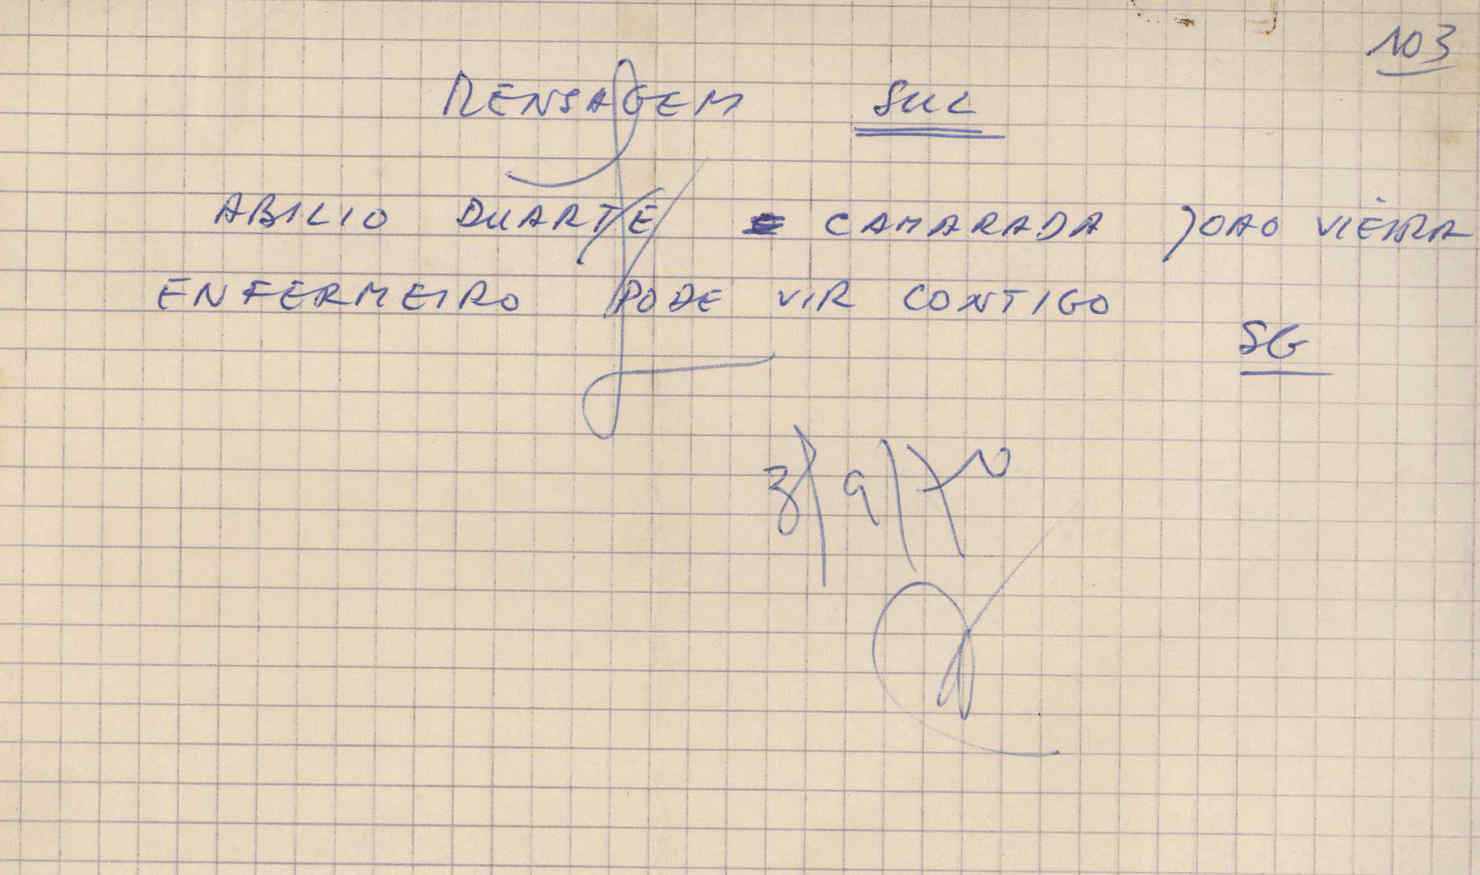 103
MENSAGEM SUL
ABILIO DUARTE = CAMARADA JOAO VIEIRA
ENFERMEIRO PODE VIR CONTIGO
SG
3/9/70